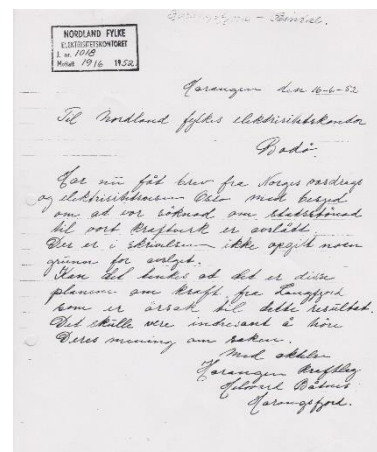 NORDLAND FYLKE
ELEKTRISITETSKONTORET
J. nr. 1018
Mottatt 19/6 1952
den 16-6-52
Til Nordland fylkes elektrisitetskontor
Bodø.
Har nu fåt brev fra Norges vasdrags
og elektrisitetsvesen Oslo med besjed
om at vor söknad om statsstönad
til vort kraftverk er avslått.
Der er i skrivelsen ikke opgit noen
grunn for avslaget.
Kan det tenkes at det er disse
planene om kraft fra Langfjord
som er årsak til dette resultat.
Det skulle vere interesant å höre
Deres mening om saken.
Med aktelse
kraftlag